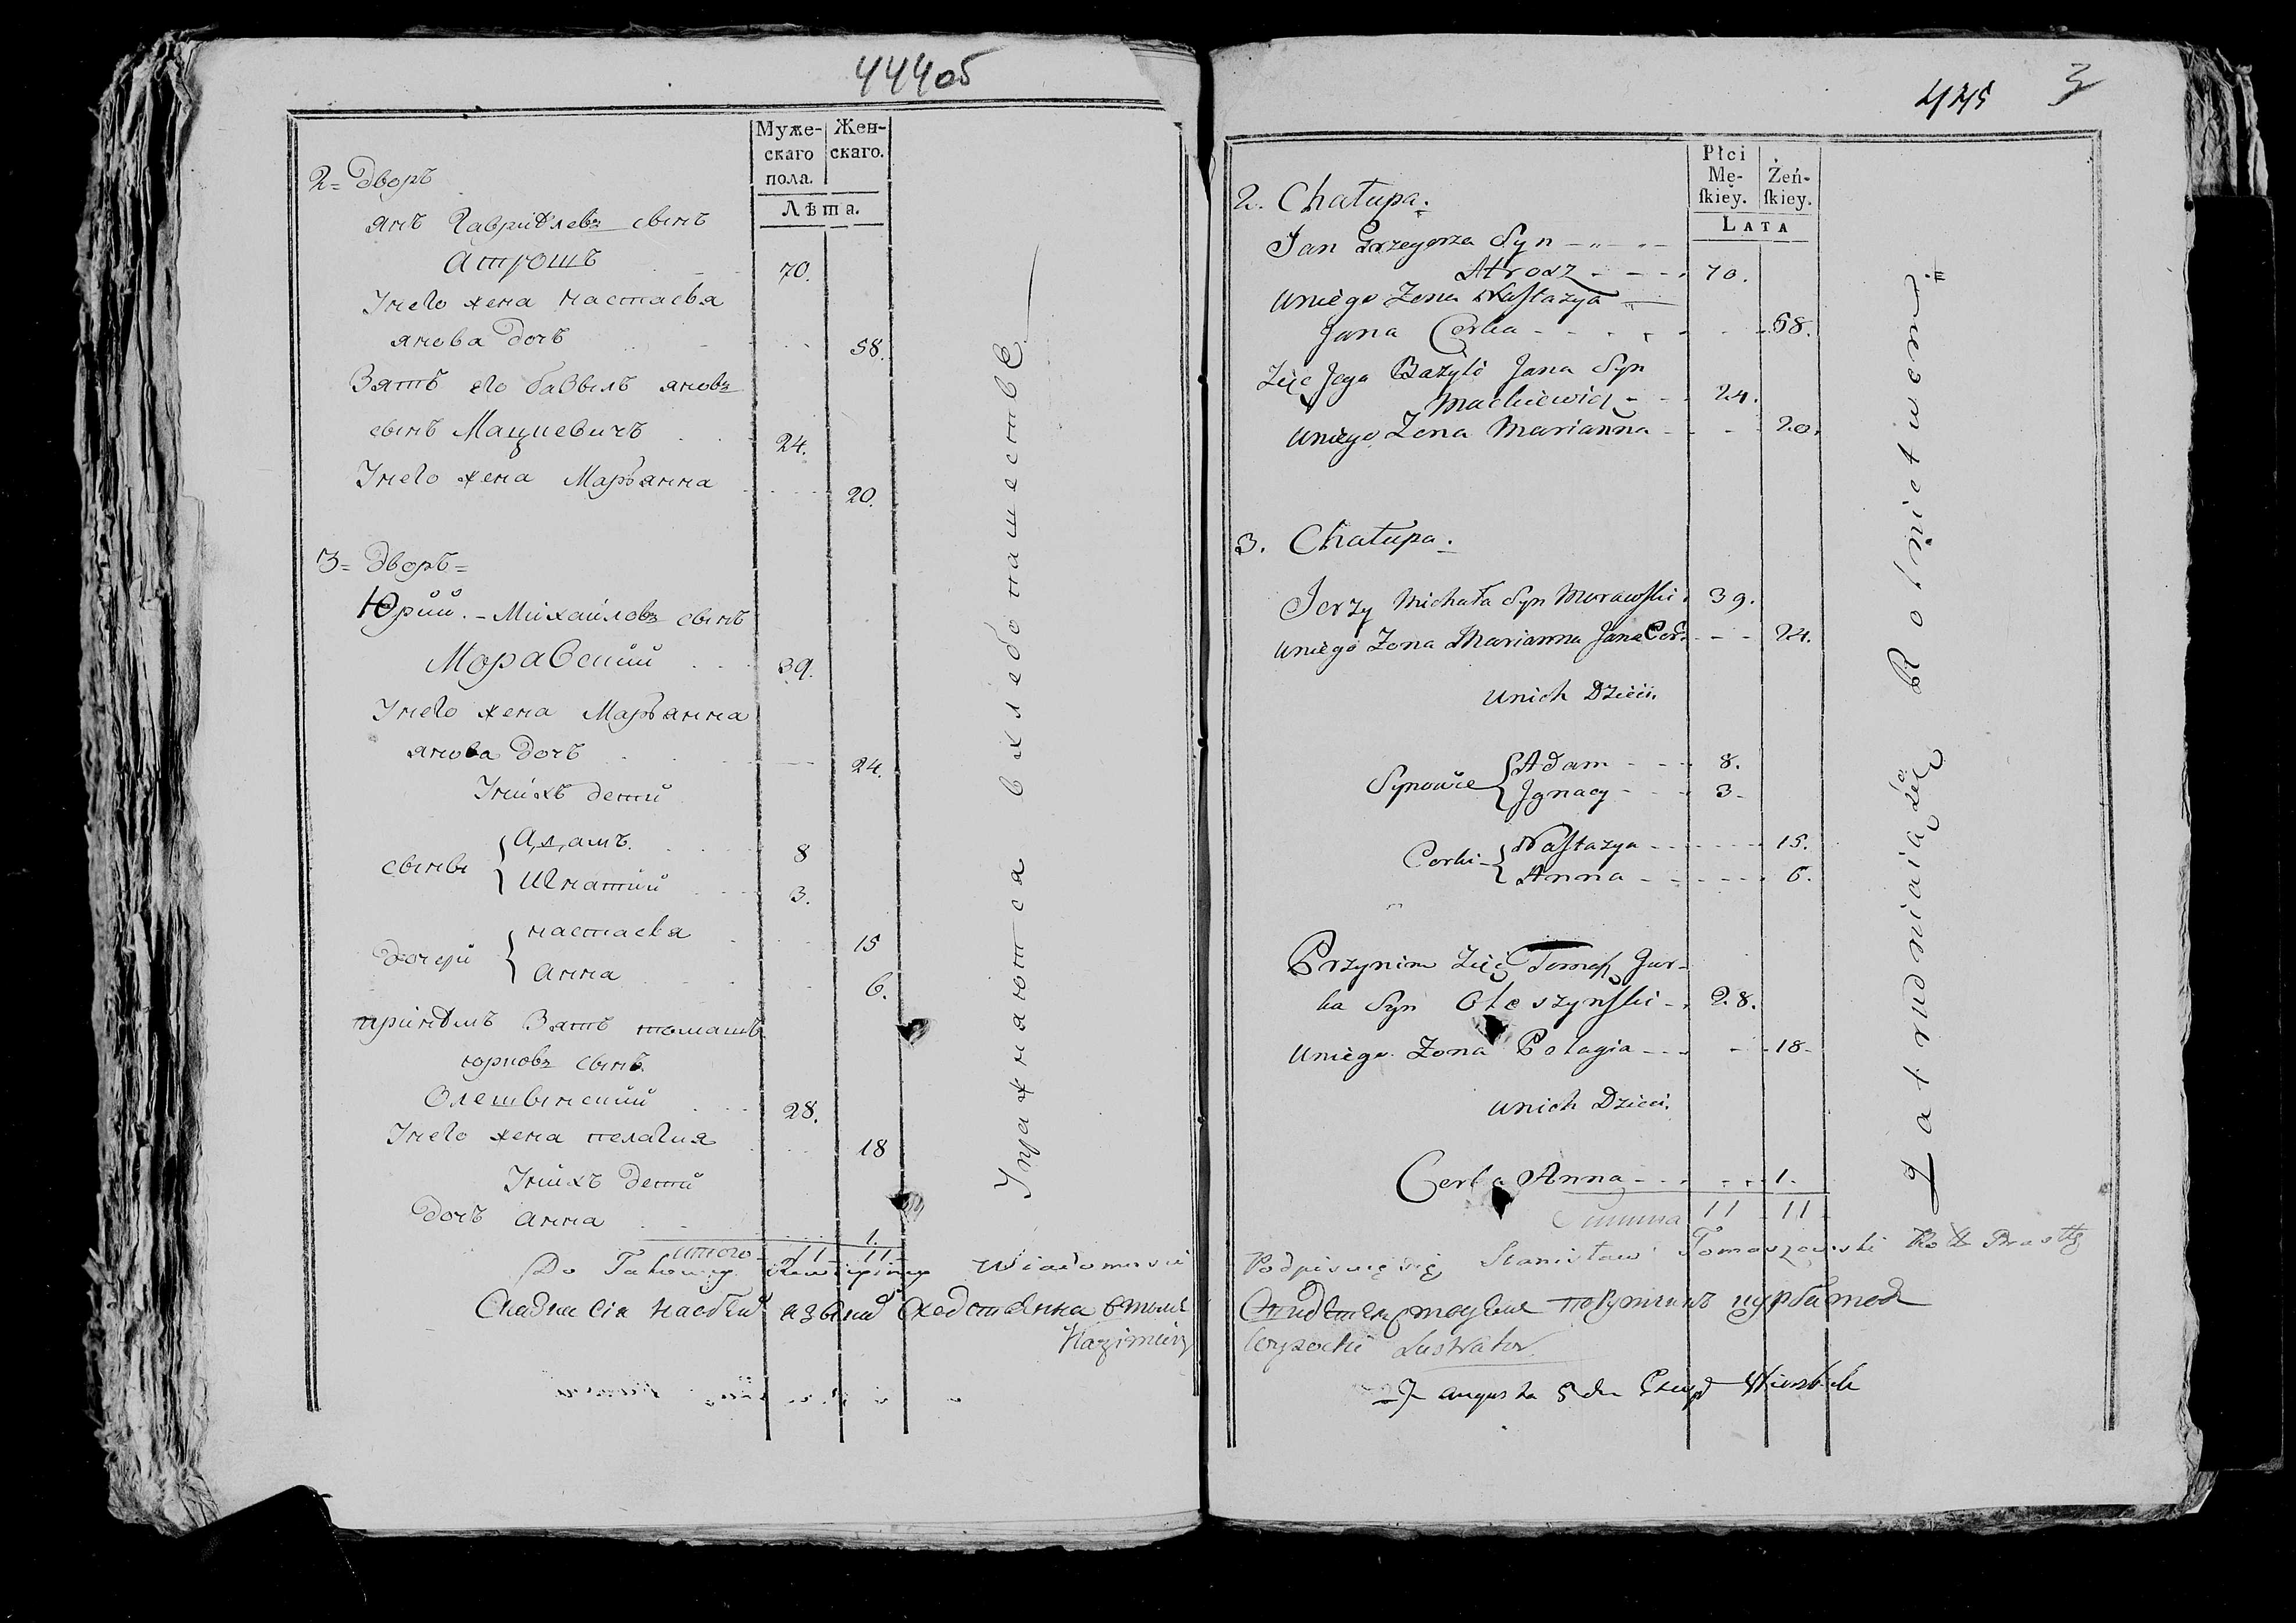 444об
Муже-
скаго
пола.
Жен-
скаго.
Лѣта.
2= Дворъ
янъ Гаврилевъ сынъ
Атрошъ 70.
Унего жена настасья
янова дочь 58.
Зять его базыль яновъ
сынъ Мацкевичъ 24.
Унего жена Марьянна 20.
3= Дворъ=
Юрий.- Михайловъ сынъ
Моравский 39.
Унего жена Марьянна
янова дочь 24.
Унихъ дети
сыны
Адамъ. 8
Игнатий 3.
дочери
настасья 15
анна 6.
принятъ Зять томашъ
юрковъ сынъ
Олешынский 28.
Унего жена пелагия 18
Унихъ дети
дочь анна 1.
итого 11 11
Упражняются в хлебопашестве
Do Takowey Rewizyiney Wiadomosci
Kazimierz
445 3
Płci
Mę-
ſkiey.
Żeń-
ſkiey.
LATA
2. Chałupa.
Jan Grzegorza Syn
Atrosz 70.
Uniego Zona Naſtazya
Jana Corka 58.
Zięc Jego Bazyli Jana Syn
Mackiewicz 24.
Uniego Zona Marianna 20.
3. Chałupa.
Jerzy Michała Syn Morawſki 39.
Uniego Zona Marianna Jana Cor. 24.
Unich Dzieci.
Synowie
Adam 8.
Jgnacy 3.
Corki
Naſtazya 15.
Anna 6.
Przynim Zięc Tomaſz Jur-
ka Syn Oleszynſki 28.
Uniego Zona Pelagia 18
Unich Dzieci.
Corka Anna 1.
Summa 11 11
Zatrudniaią się Rolnictwem
Podpisuię się Stanisław Tomaszewski
Wysocki Lustrator